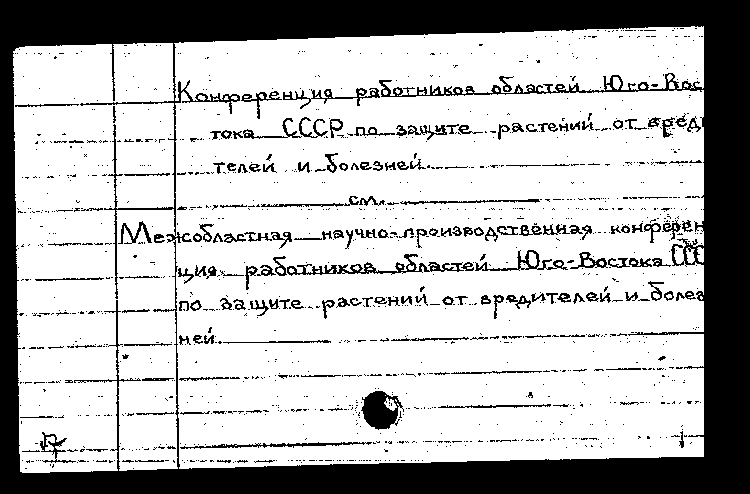 Конференция работников областей Юго-Вос
тока СССР по защите растений от вреди
телей и болезней.
см.
Межобластная научно-производственная конферен
ция работников областей Юго-Востока СССР
по защите растений от вредителей и болез
ней.